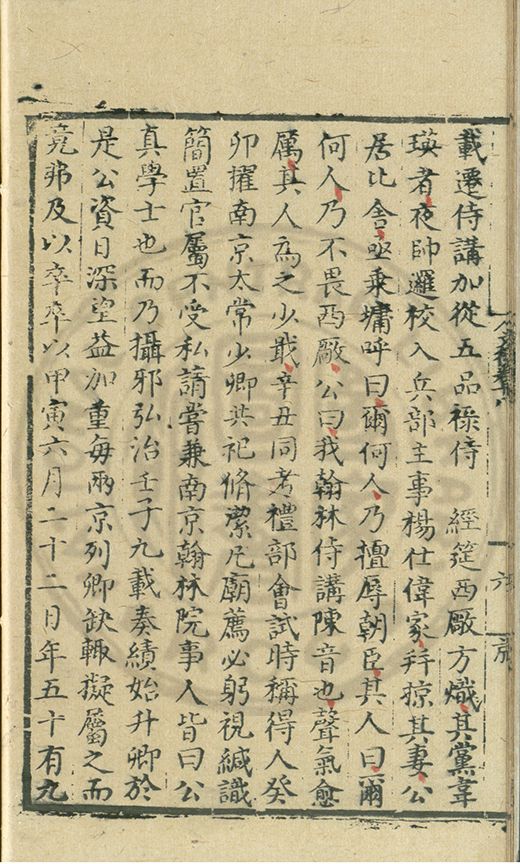 載遷侍講加從五品祿侍　經筵西厰方熾其黨韋
瑛者夜帥邏校入兵部主事楊仕偉家拷掠其妻公
居比舍亟乘墉呼曰爾何人乃擅辱朝臣其人曰爾
何人乃不畏西厰公曰我翰林侍講陳音也聲氣愈
厲其人為之少戢辛丑同考禮部會試時稱得人癸
卯擢南京太常少卿共祀脩潔凡廟薦必躬視緘識
簡置官屬不受私請嘗兼南京翰林院事人皆曰公
真學士也而乃攝邪弘治壬子九載奏績始升卿於
是公資日深望益加重每兩京列卿缺輙擬屬之而
竟弗及以卒卒以甲寅六月二十二日年五十有九